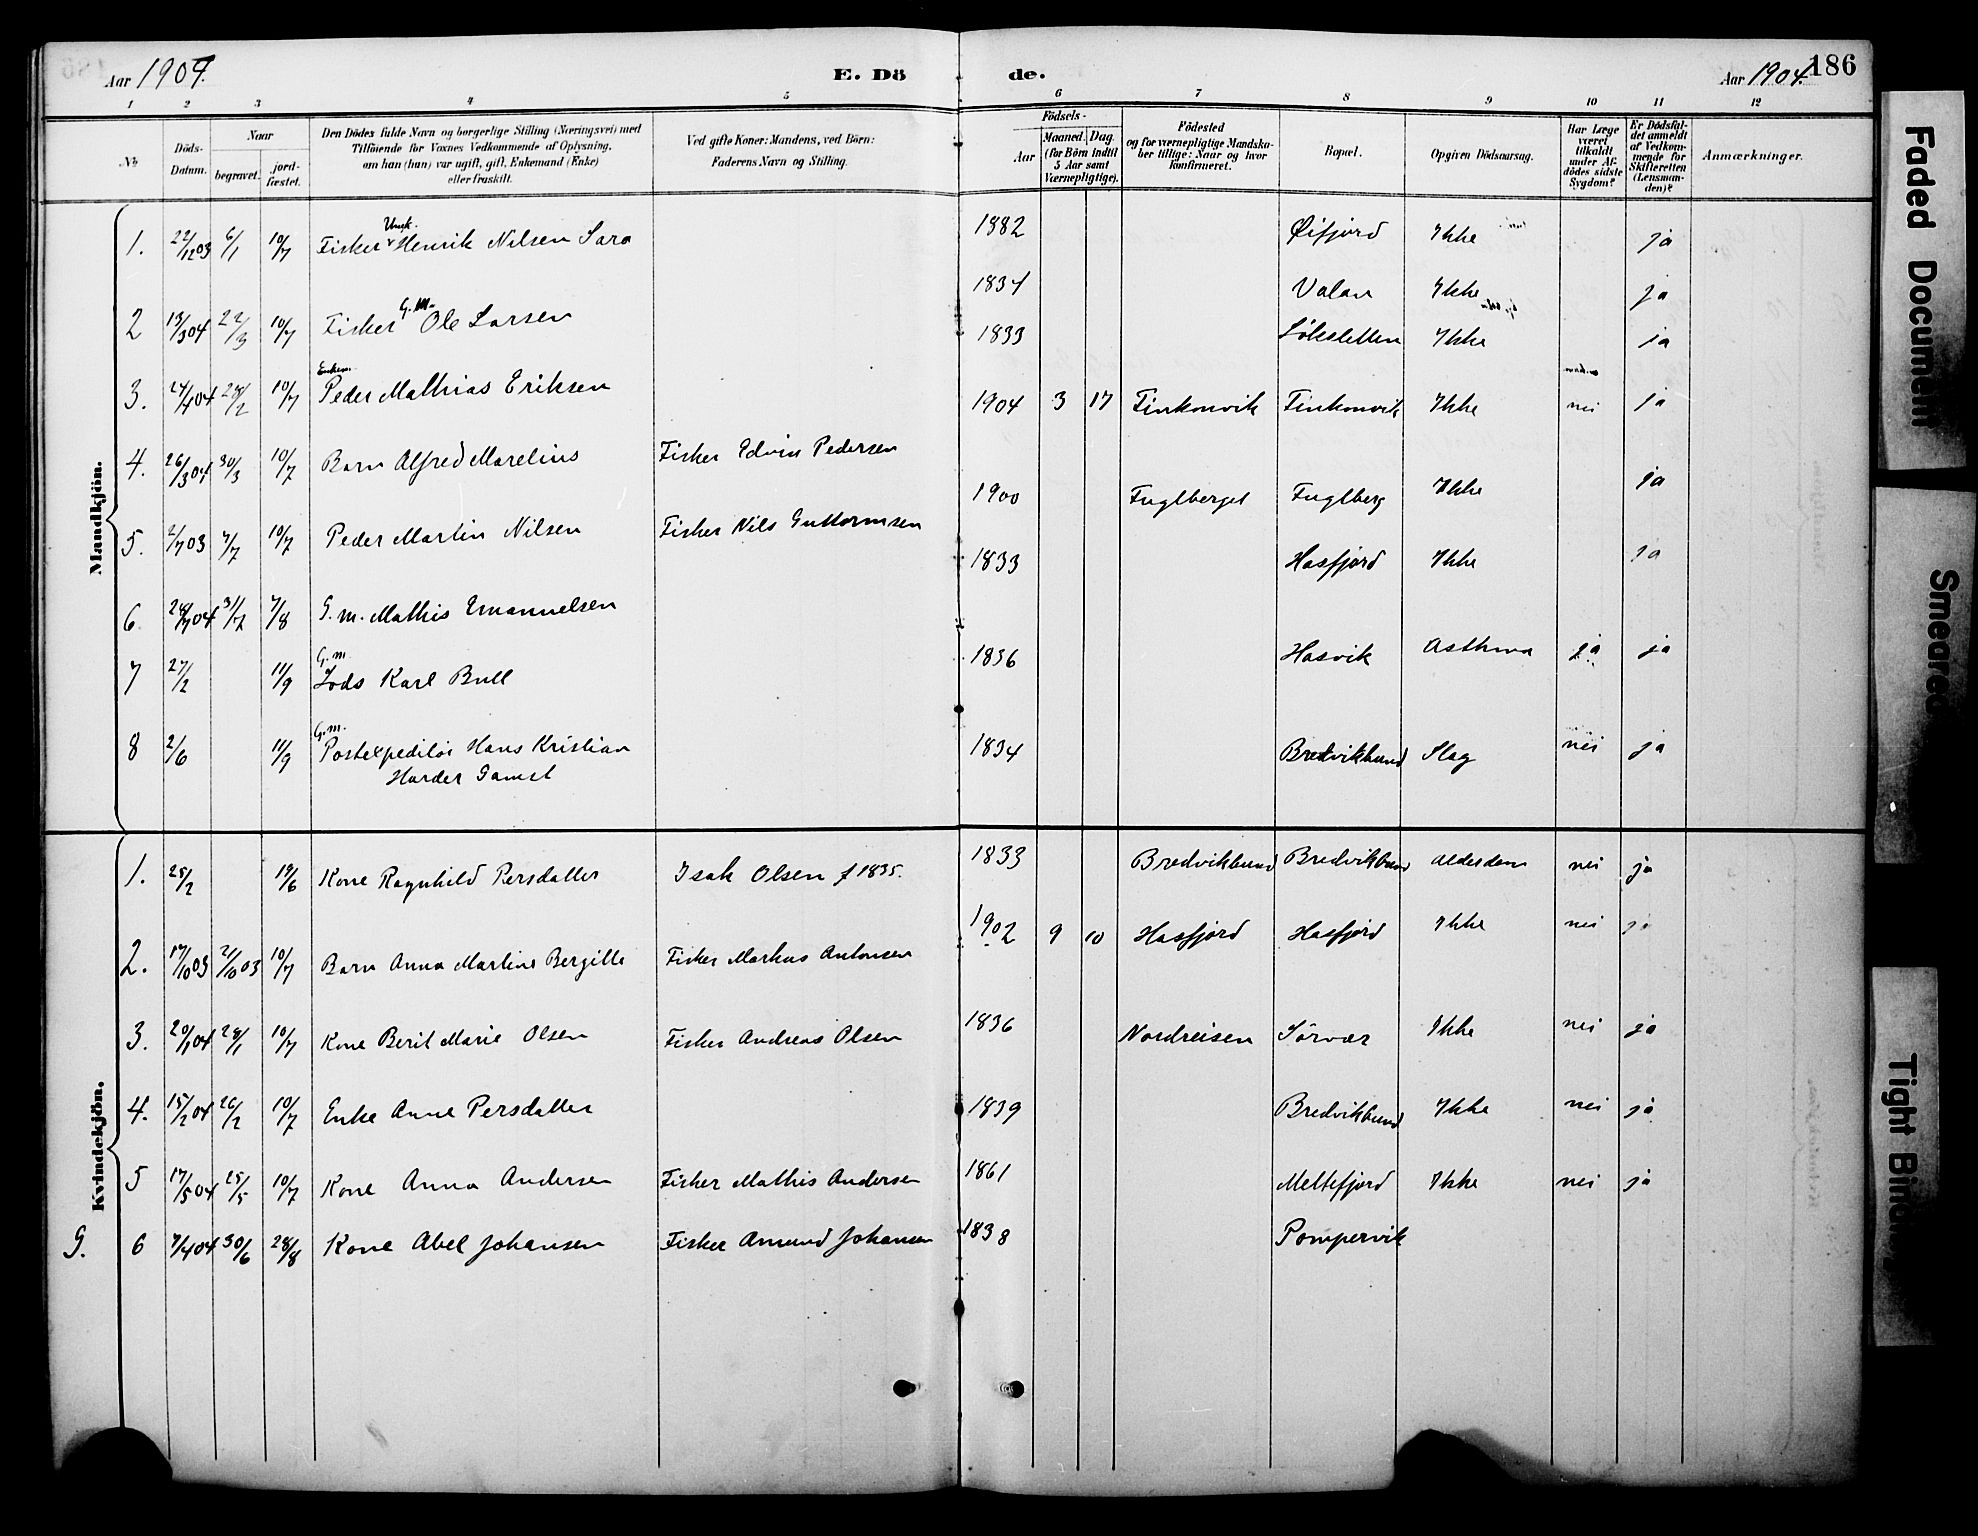 Aar 1904.
E. Dö
de.
Aar 1904.
186
1 2 3 4 5 6 7 8 9 10 11 12
No
Döds-Datum.
Naar
begravet.
jord-fæstet.
Den Dödes fulde Navn og borgerlige Stilling (Næringsvei) med
Tilföiende for Voxnes Vedkommende af Oplysning,
om han (hun) var ugift, gift, Enkemand (Enke)
eller fraskilt.
Ved gifte Koner: Mandens, ved Börn:
Faderens Navn og Stilling.
Födsels-
Aar
Maaned.
Dag.
(for Börn indtil
5 Aar samt
Værnepligtige).
Födested
og for værnepligtige Mandska-
ber tillige: Naar og hvor
konfirmeret.
Bopæl.
Opgiven Dödsaarsag.
Har Læge
været
tilkaldt
under Af-
dödes sidste
Sygdom?
Er Dödsfal-
det anmeldt
af Vedkom-
mende for
Skifteretten
(Lensman-
den)?
Anmærkninger.
Mandkjön.
1. 22/12 03 6/1 10/7 Fisker Ungk. Henrik Nilsen Sara 1882 Øifjord Ikke ja
2 13/3 04 22/3 10/7 Fisker G.M. Ole Larsen 1834 Valan Ikke ja
3. 24/4 04 28/2 10/7 Enkem. Peder Mathias Eriksen 1833 Söksletten Ikke ja
4. 26/3 04 30/3 10/7 Barn Alfred Marelius Fisker Edvin Pedersen 1904 3 17 Finkonvik Finkonvik Ikke nei ja
5. 2/7 03 7/7 10/7 Peder Martin Nilsen Fisker Nils Guttormsen 1900 Fuglberget Fuglberg Ikke ja
6. 28/7 04 31/7 7/8 G.m. Mathis Emanuelsen 1833 Hasfjord Ikke ja
7 27/2 11/9 G.m. Lods Karl Bull 1836 Hasvik Asthma ja ja
8 2/6 11/9 G.m. Postexpeditör Hans Kristian
Harder Gamst 1834 Bredvikbund Slag nei ja
Kvindekjön.
1. 25/2 19/6 Kone Ragnhild Persdatter Isak Olsen f 1835. 1833 Bredvikbund Bredvikbund Alderdom nei ja
2. 17/10 03 21/10 03 10/7 Barn Anna Martine Bergitte Fisker Markus Antonsen 1902 9 10 Hasfjord Hasfjord Ikke nei ja
3. 20/1 04 28/1 10/7 Kone Berit Marie Olsen Fisker Andreas Olsen 1836 Nordreisen Sörvær Ikke nei ja
4. 15/2 04 26/2 10/7 Enke Anne Persdatter 1839 Bredvikbund Ikke nei ja
5 17/5 04 25/5 10/7 Kone Anna Andersen Fisker Mathis Andersen 1861 Meltefjord Ikke nei ja
G. 6 7/4 04 30/6 28/8 Kone Abel Johansen Fisker Amund Johansen 1838 Pompervik
Faded Document
Smeared
Tight Bind